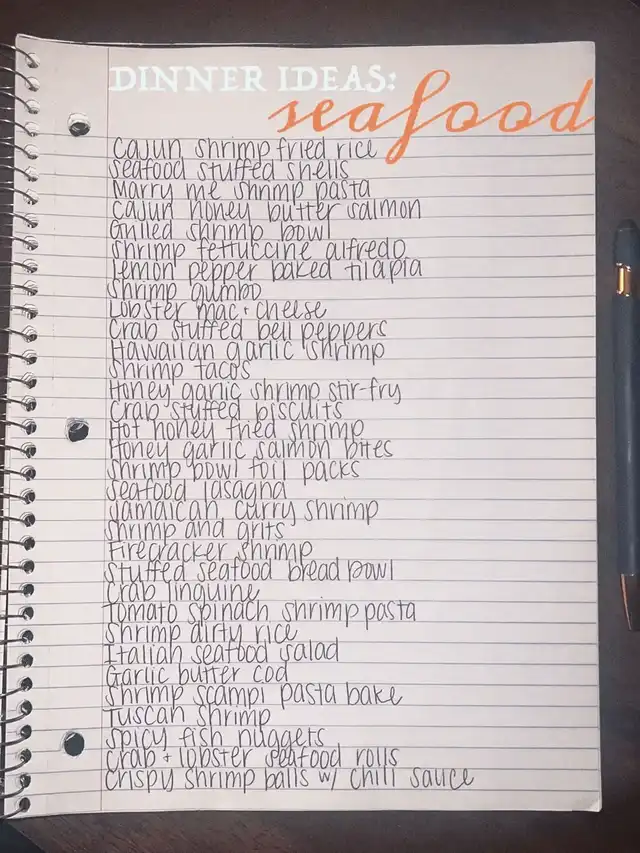 DINNER IDEAS:
seafood
Cajun shrimp fried rice
Seafood stuffed shells
Marry me shrimp pasta
Cajun honey butter salmon
Grilled shrimp bowl
Shrimp fettuccine alfredo
Lemon pepper baked tilapia
Shrimp gumbo
Lobster mac + cheese
Crab stuffed bell peppers
Hawaiian garlic shrimp
Shrimp tacos
Honey garlic shrimp stir-fry
Crab stuffed biscuits
Hot honey fried shrimp
Honey garlic salmon bites
Shrimp bowl foil packs
Seafood lasagna
Jamaican curry shrimp
Shrimp and grits
Firecracker shrimp
Stuffed seafood bread bowl
Crab linguine
Tomato spinach shrimp pasta
Shrimp dirty rice
Italian seafood salad
Garlic butter cod
Shrimp scampi pasta bake
Tuscan shrimp
Spicy fish nuggets
Crab + lobster seafood rolls
Crispy shrimp balls w/ chili sauce